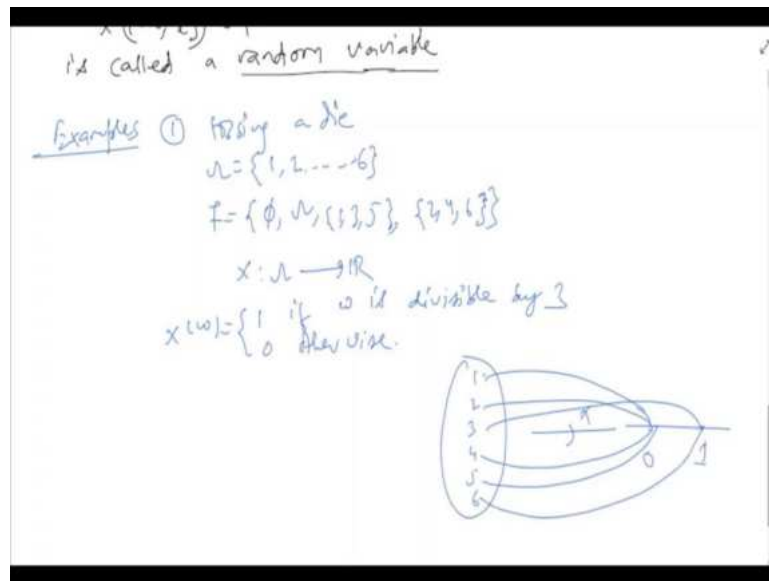 is called a random variable
Examples ① Tossing a die
Ω = {1, 2, ---- 6}
F = {ϕ, Ω, {1,3,5}, {2,4,6}}
X : Ω → IR
X(ω) = { 1 if ω is divisible by 3
0 otherwise.
1
2
3
4
5
6
0 1